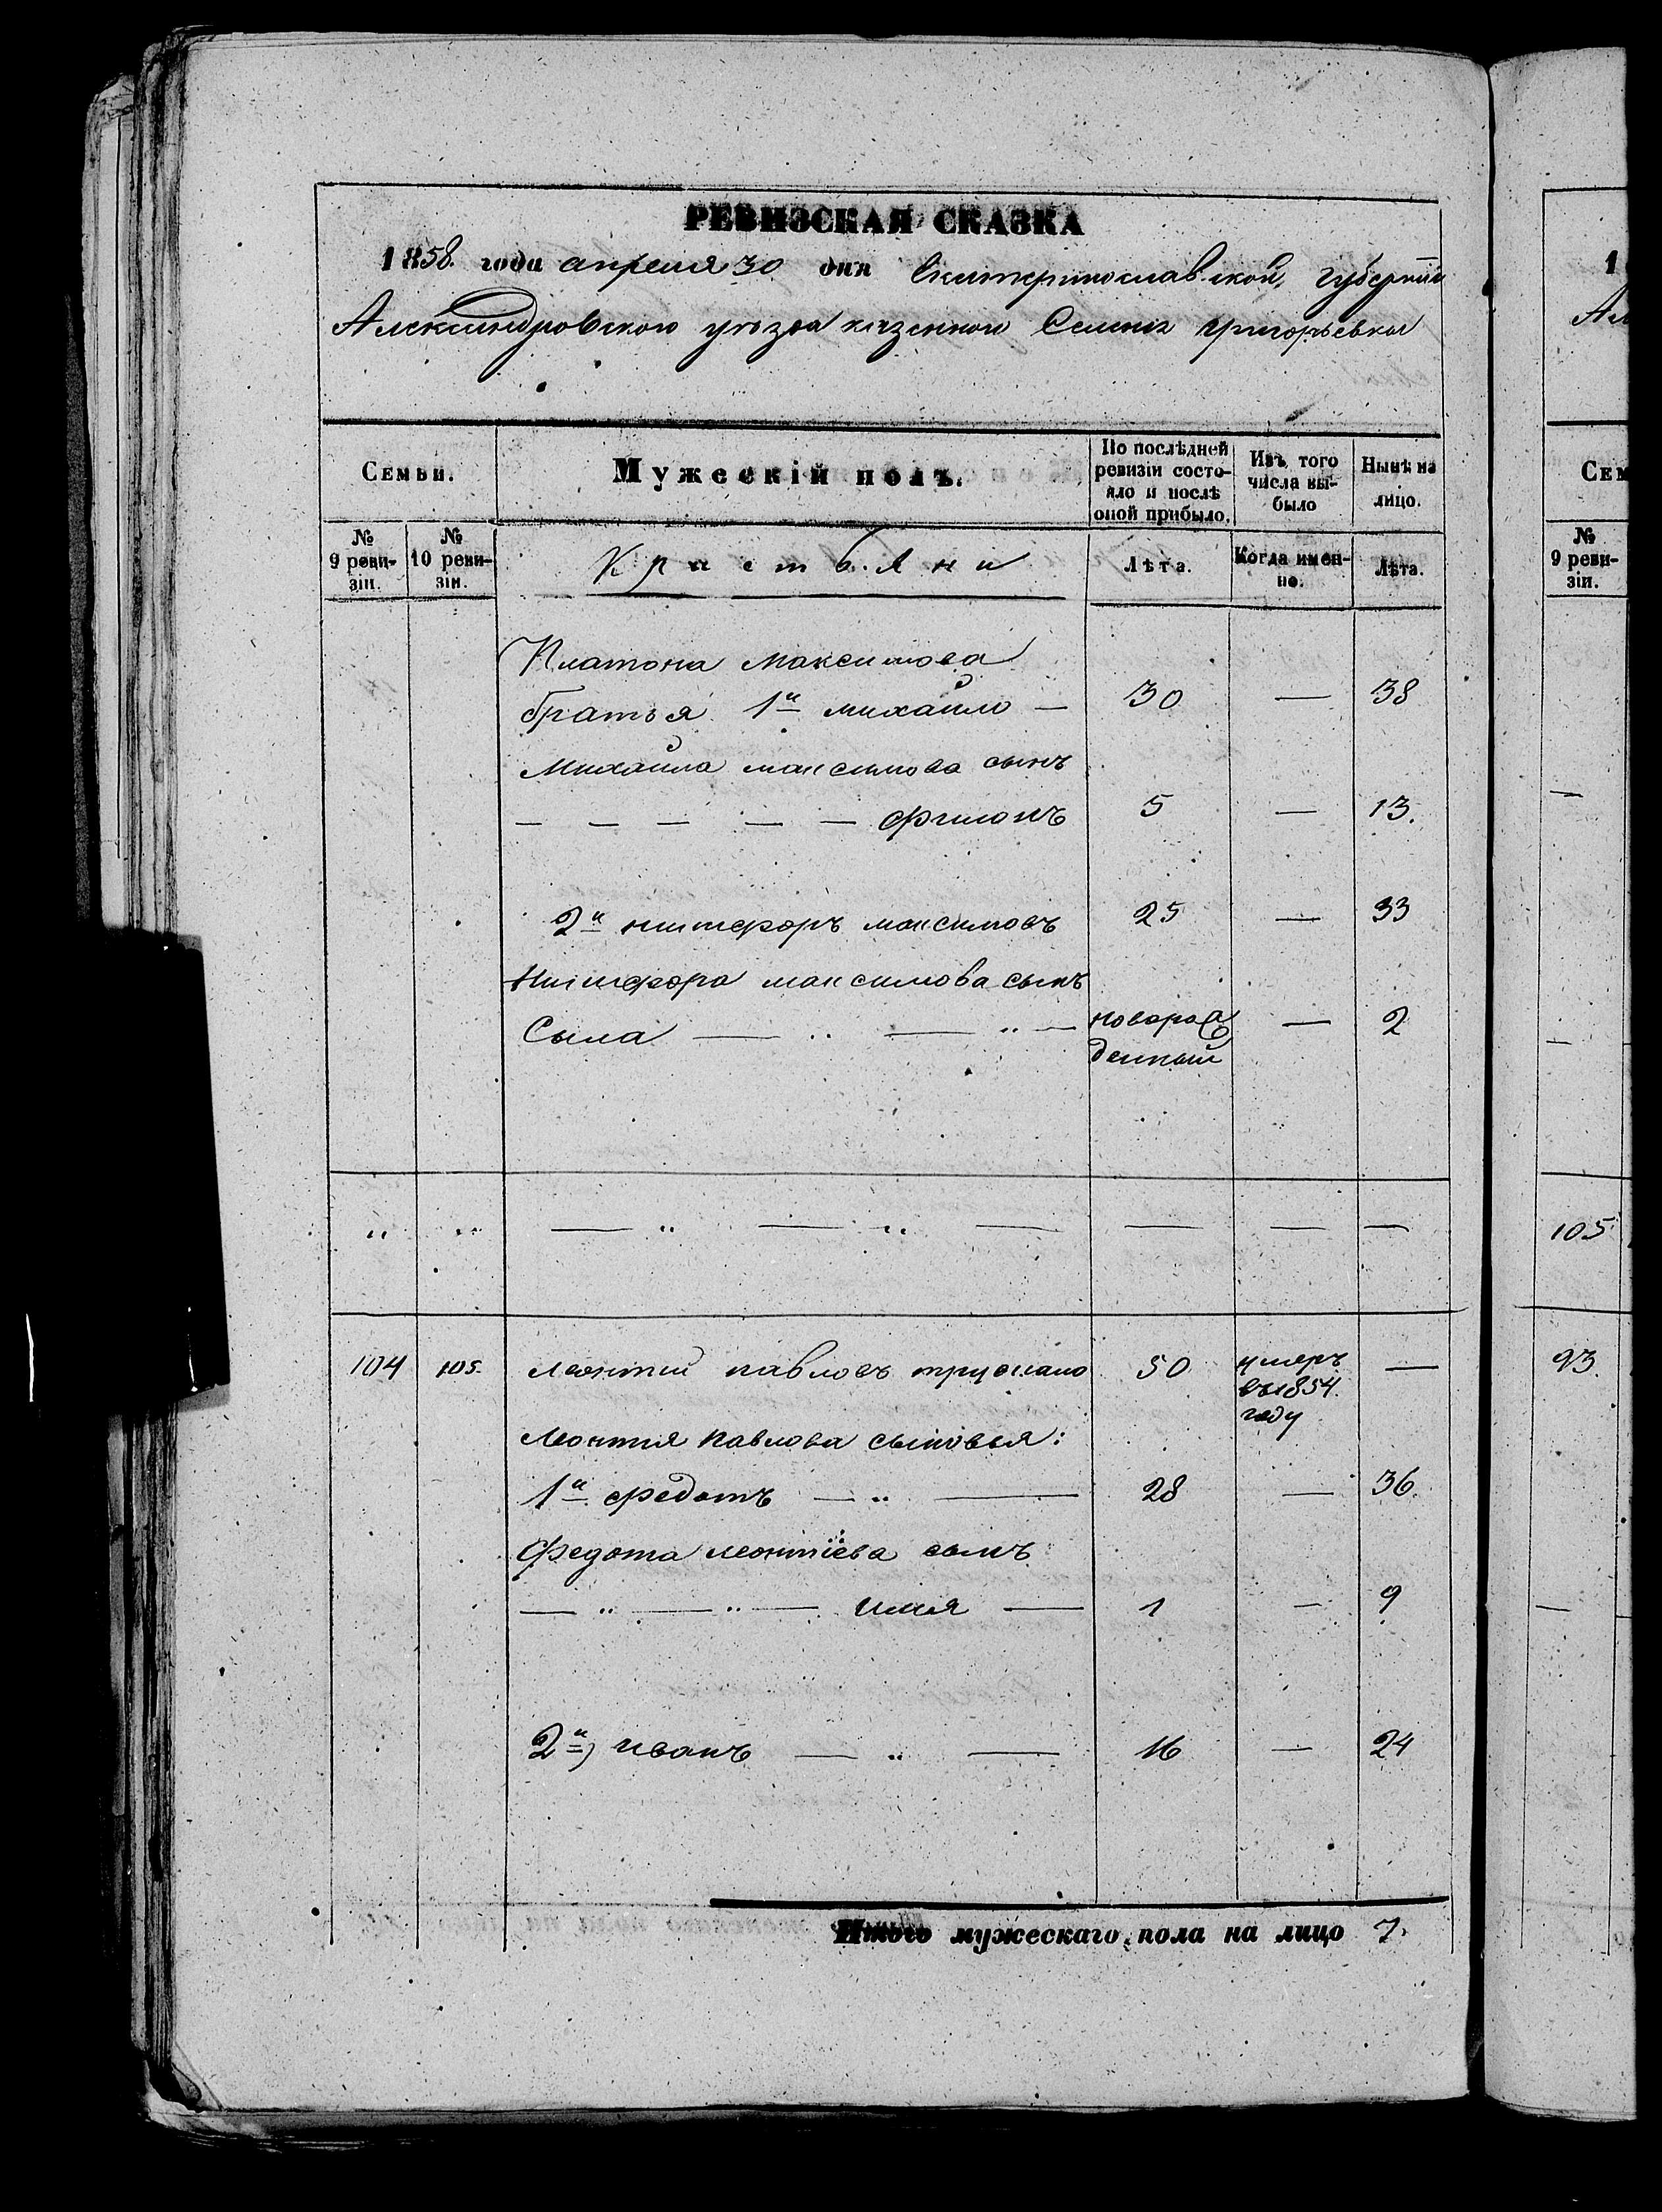 РЕВИЗСКАЯ СКАЗКА
1858. года апреля 30 дня Екатеринославской, губернии
Александровского уезда казенного Селения григорьевки
Семьи.
Мужескій полъ.
По послѣдней ревизіи состояло и послѣ оной прибыло.
Изъ того числа выбыло
Нынѣ на лицо.
№ 9 ревизіи.
№ 10 ревизіи.
Крестьяни
Лѣта.
Когда именно.
Лѣта.
Платона Максимова
братья 1й михайло — 30 — 38
Михайла максимова сынъ
— — — — — филонъ 5 — 13.
2й никифоръ максимовъ 25 — 33
Никифора максимова сынъ
Сыла — „ — „ — новорож
денный — 2
„ „ — „ — „ — — — —
104 105. Леонтий павловъ трускало 50 умеръ —
въ 1854.
году
Леонтия павлова сыновья:
1й федотъ — „ — 28 — 36.
Федота леонтіева сынъ
— „ — „ — илия — 1 — 9
2й, иванъ — „ — 16 — 24
Итого мужескаго пола на лицо 7.
1
Ал
Сем
№
9 реви-
зіи.
—
—
105
93.
—